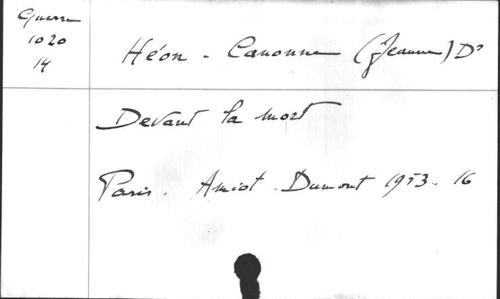 Guerre
1020
14
Héon - Canonne (Jeanne) Dr
Devant la mort
Paris. Amiot. Dumont 1953. 16